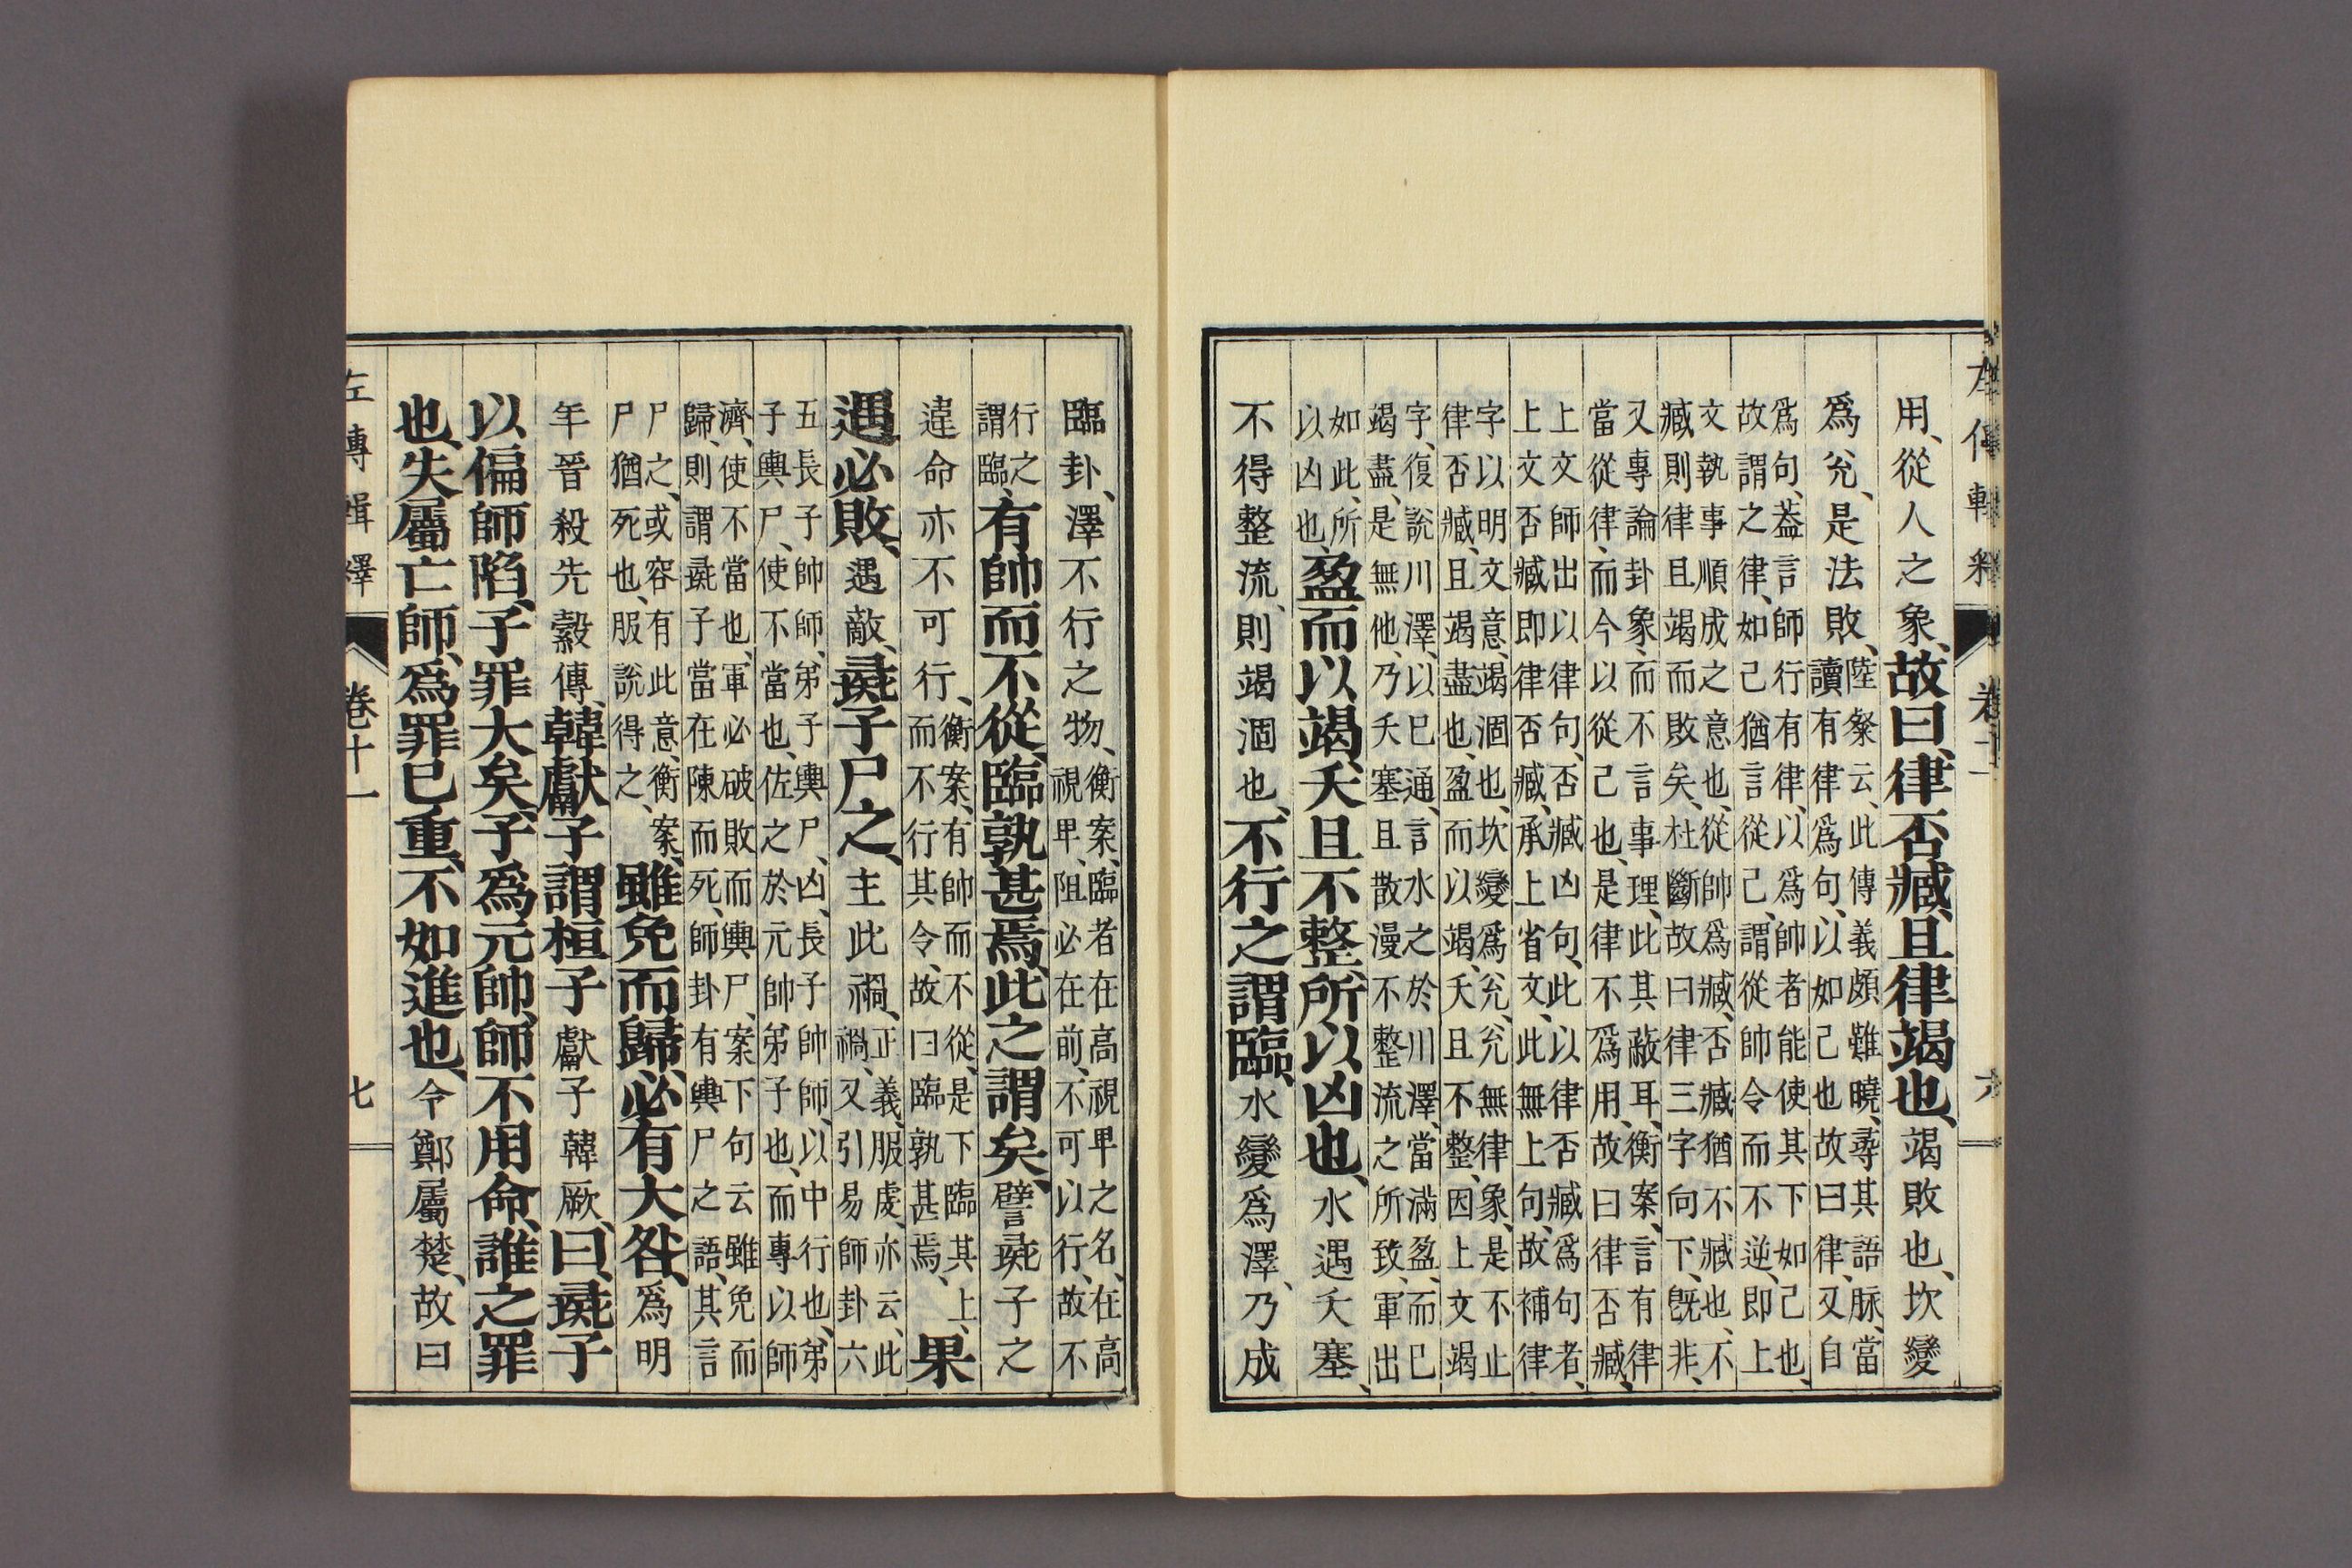 左傳輯釋 卷十一 六
用、從人之象、故曰、律否臧、且律竭也、竭敗也、坎變
爲兊、是法敗、陸粲云、此傳義頗難曉、尋其語脉、當讀有律爲句、以如己也故曰律、又自
爲句、葢言師行有律、以爲帥者能使其下如己也、
故謂之律、如己猶言從己、謂從帥令而不逆、即上
文執事順成之意也、從帥爲臧、否臧猶不臧也、不
臧則律且竭而敗矣、杜斷故曰律三字向下、旣非、
又專論卦象、而不言事理、此其蔽耳、衡案、言有律
當從律、而今以從己也、是律不爲用、故曰律否臧、
上文師出以律句、否臧凶句、此以律否臧爲句者、
上文否臧即律否臧、承上省文、此無上句、故補律
字以明文意、竭涸也、坎變爲兊、兊無律象、是不止
律否臧、且竭盡也、盈而以竭、夭且不整、因上文竭
字、復說川澤、以巳通、言水之於川澤、當滿盈、而巳
竭盡、是無他、乃夭塞且散漫不整流之所致、軍出
如此、所以凶也、盈而以竭、夭且不整、所以凶也、水遇夭塞、
不得整流、則竭涸也、不行之謂臨、水變爲澤、乃成
臨卦、澤不行之物、衡案、臨者在高視卑之名、在高視卑、阻必在前、不可以行、故不
行之謂臨、有帥而不從、臨孰甚焉、此之謂矣、譬彘子之
違命亦不可行、衡案、有帥而不從、是下臨其上、而不行其令、故曰臨孰甚焉、果
遇必敗、遇敵、彘子尸之、主此禍、正義、服虔亦云、此禍、又引易師卦六
五長子帥師、弟子輿尸、凶、長子帥師、以中行也、弟
子輿尸、使不當也、佐之於元帥弟子也、而專以師
濟、使不當也、軍必破敗而輿尸、案下句云雖免而
歸、則謂彘子當在陳而死、師卦有輿尸之語、其言
尸之、或容有此意、衡案、尸猶死也、服說得之、雖免而歸、必有大咎、爲明
年晉殺先縠傳、韓獻子謂桓子獻子韓厥、曰、彘子
以偏師陷、子罪大矣、子爲元帥、師不用命、誰之罪
也、失屬亡師、爲罪已重、不如進也、令鄭屬楚、故曰
左傳輯釋 卷十一 七